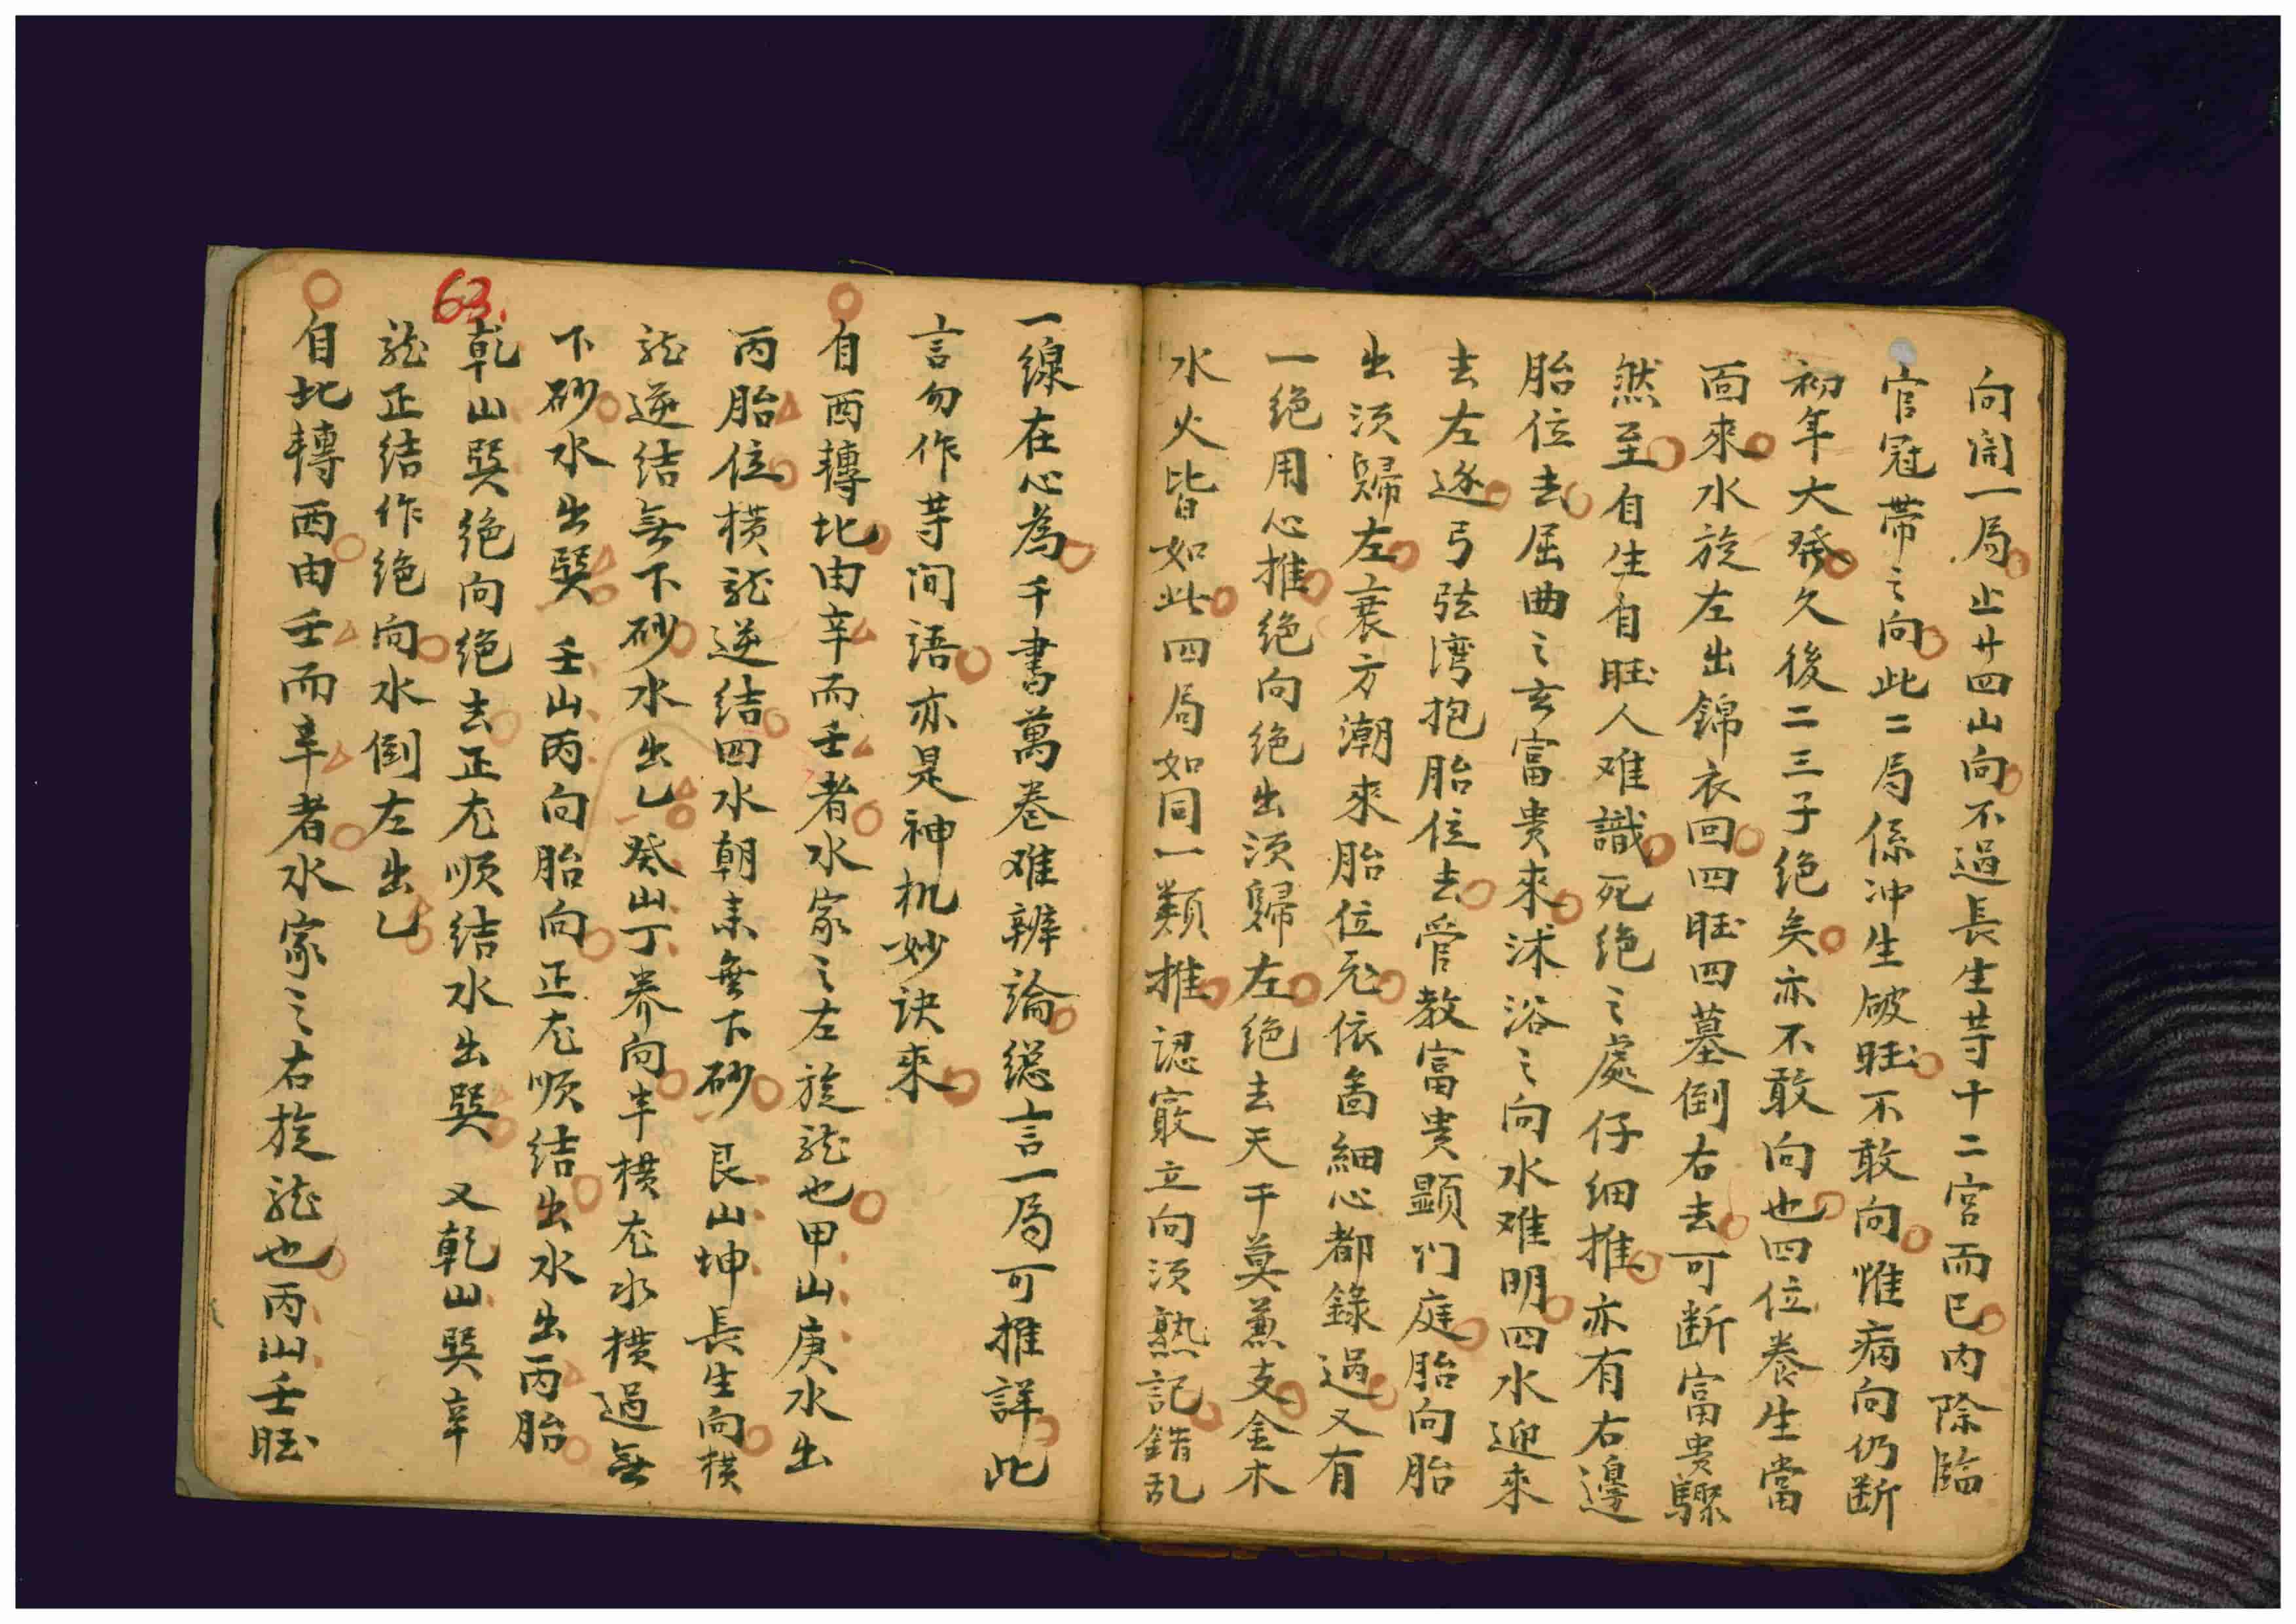 向開一局止廿四山向不過長生等十二宮而已內除臨
官冠帶之向此二局係冲生破旺不敢向惟病向仍断
初年大發久後二三子绝矣亦不敢向也四位養生當
面來水旋左出錦衣回四旺四墓倒右去可断富貴驟
然至自生自旺人难識死绝之處仔细推亦有右邊
胎位去屈曲之玄富貴來沭浴之向水难明四水迎來
去左逐弓弦湾抱胎位去管教富貴顯门庭胎向胎
出須歸左衰方潮來胎位死依啚細心都錄過又有
一绝用心推绝向绝出須歸左绝去天干莫蒹支金木
水火皆如此四局如同一類推認㝡立向須熟記錯乱
一線在心為千書萬卷难辨論総言一局可推詳此
言勿作䒭间語亦是神机妙诀來
自西轉北由辛而壬者水家之左旋龍也甲山庚水出
丙胎位橫龍逆结四水朝来無下砂 艮山坤長生向橫
龍逆结無下砂水出乙癸山丁养向半橫龙水橫過無
下砂水出巽 壬山丙向胎向正龙顺结出水出丙胎
乾山巽绝向绝去正龙顺结水出巽 又乾山巽辛
龍正结作绝向水倒左出乙
63.
自北轉西由壬而辛者水家之右旋龍也丙山壬旺